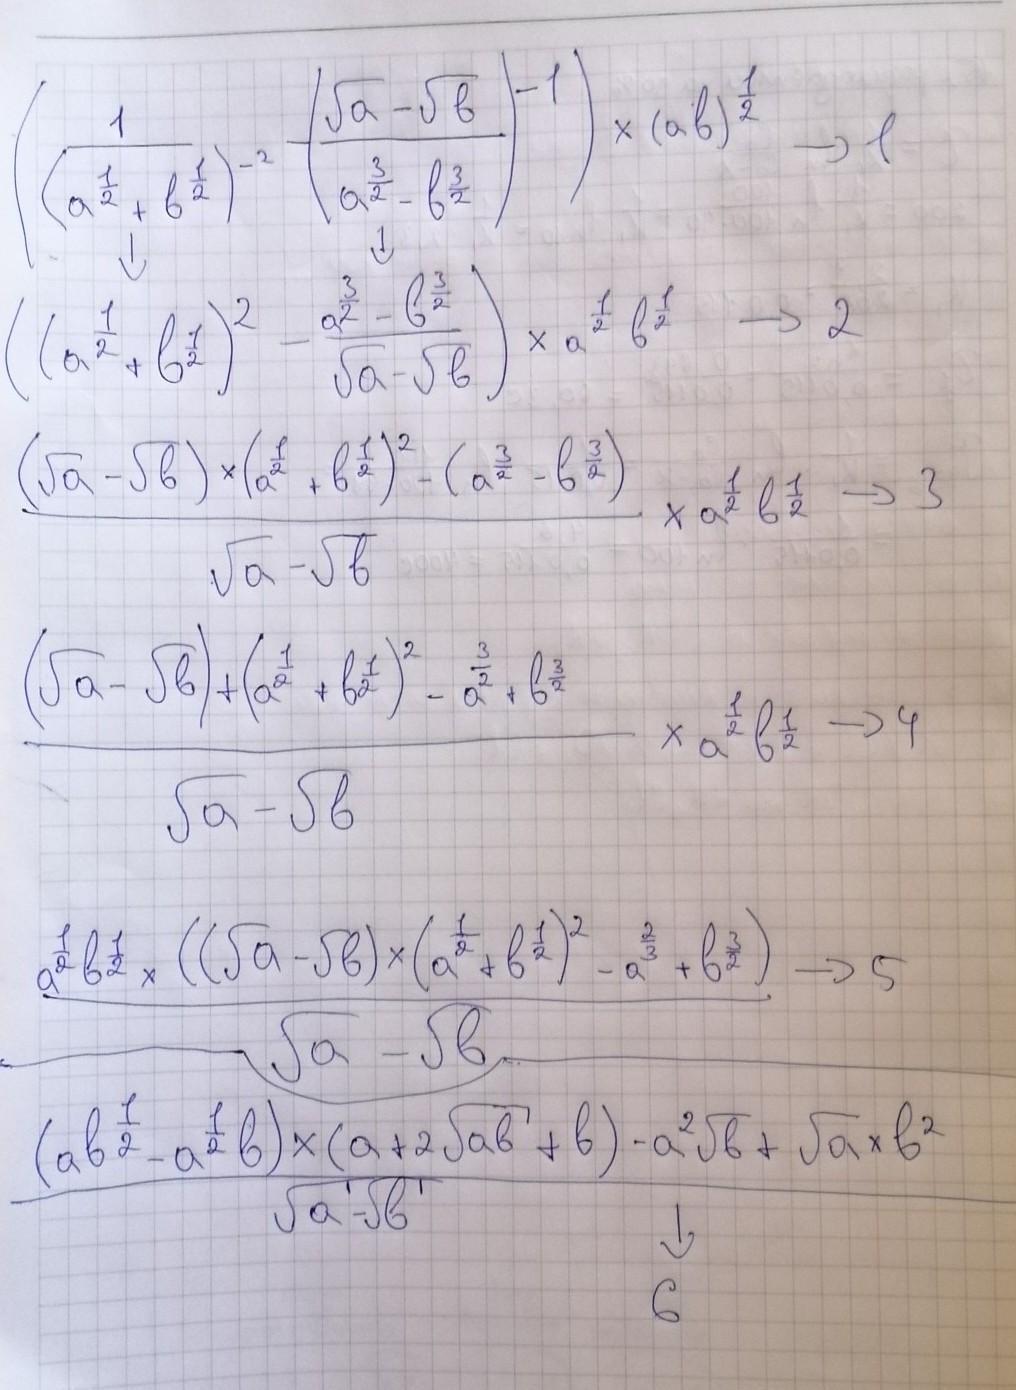 (1/(a^(1/2) + b^(1/2))^(-2) - ((√a - √b)/(a^(3/2) - b^(3/2)))^(-1)) × (ab)^(1/2) → 1
↓ ↓
((a^(1/2) + b^(1/2))^2 - (a^(3/2) - b^(3/2))/(√a - √b)) × a^(1/2) b^(1/2) → 2
((√a - √b) × (a^(1/2) + b^(1/2))^2 - (a^(3/2) - b^(3/2)))/(√a - √b) × a^(1/2) b^(1/2) → 3
((√a - √b) + (a^(1/2) + b^(1/2))^2 - a^(3/2) + b^(3/2))/(√a - √b) × a^(1/2) b^(1/2) → 4
a^(1/2) b^(1/2) × ((√a - √b) × (a^(1/2) + b^(1/2))^2 - a^(2/3) + b^(3/2))/(√a - √b) → 5
((ab^(1/2) - a^(1/2)b) × (a + 2√ab + b) - a^2√b + √a × b^2)/(√a - √b)
↓
6